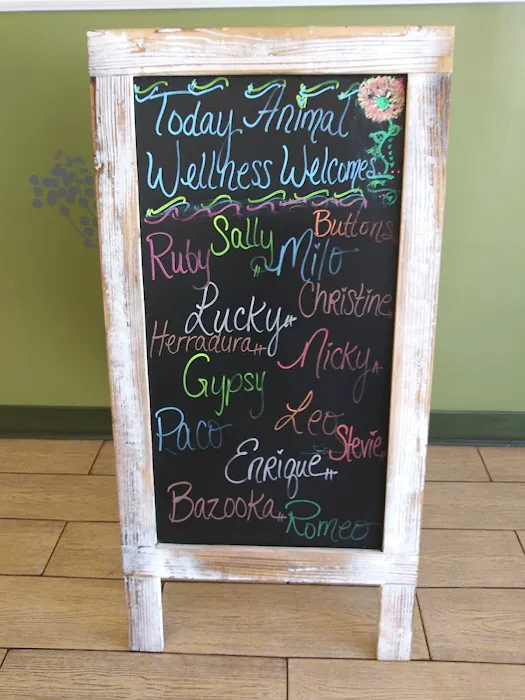 Today Animal
Wellness Welcomes
Buttons
Sally
Ruby
Milo
Christine
Lucky
Herradura
Nicky
Gypsy
Leo
Paco
Stevie
Enrique
Bazooka
Romeo